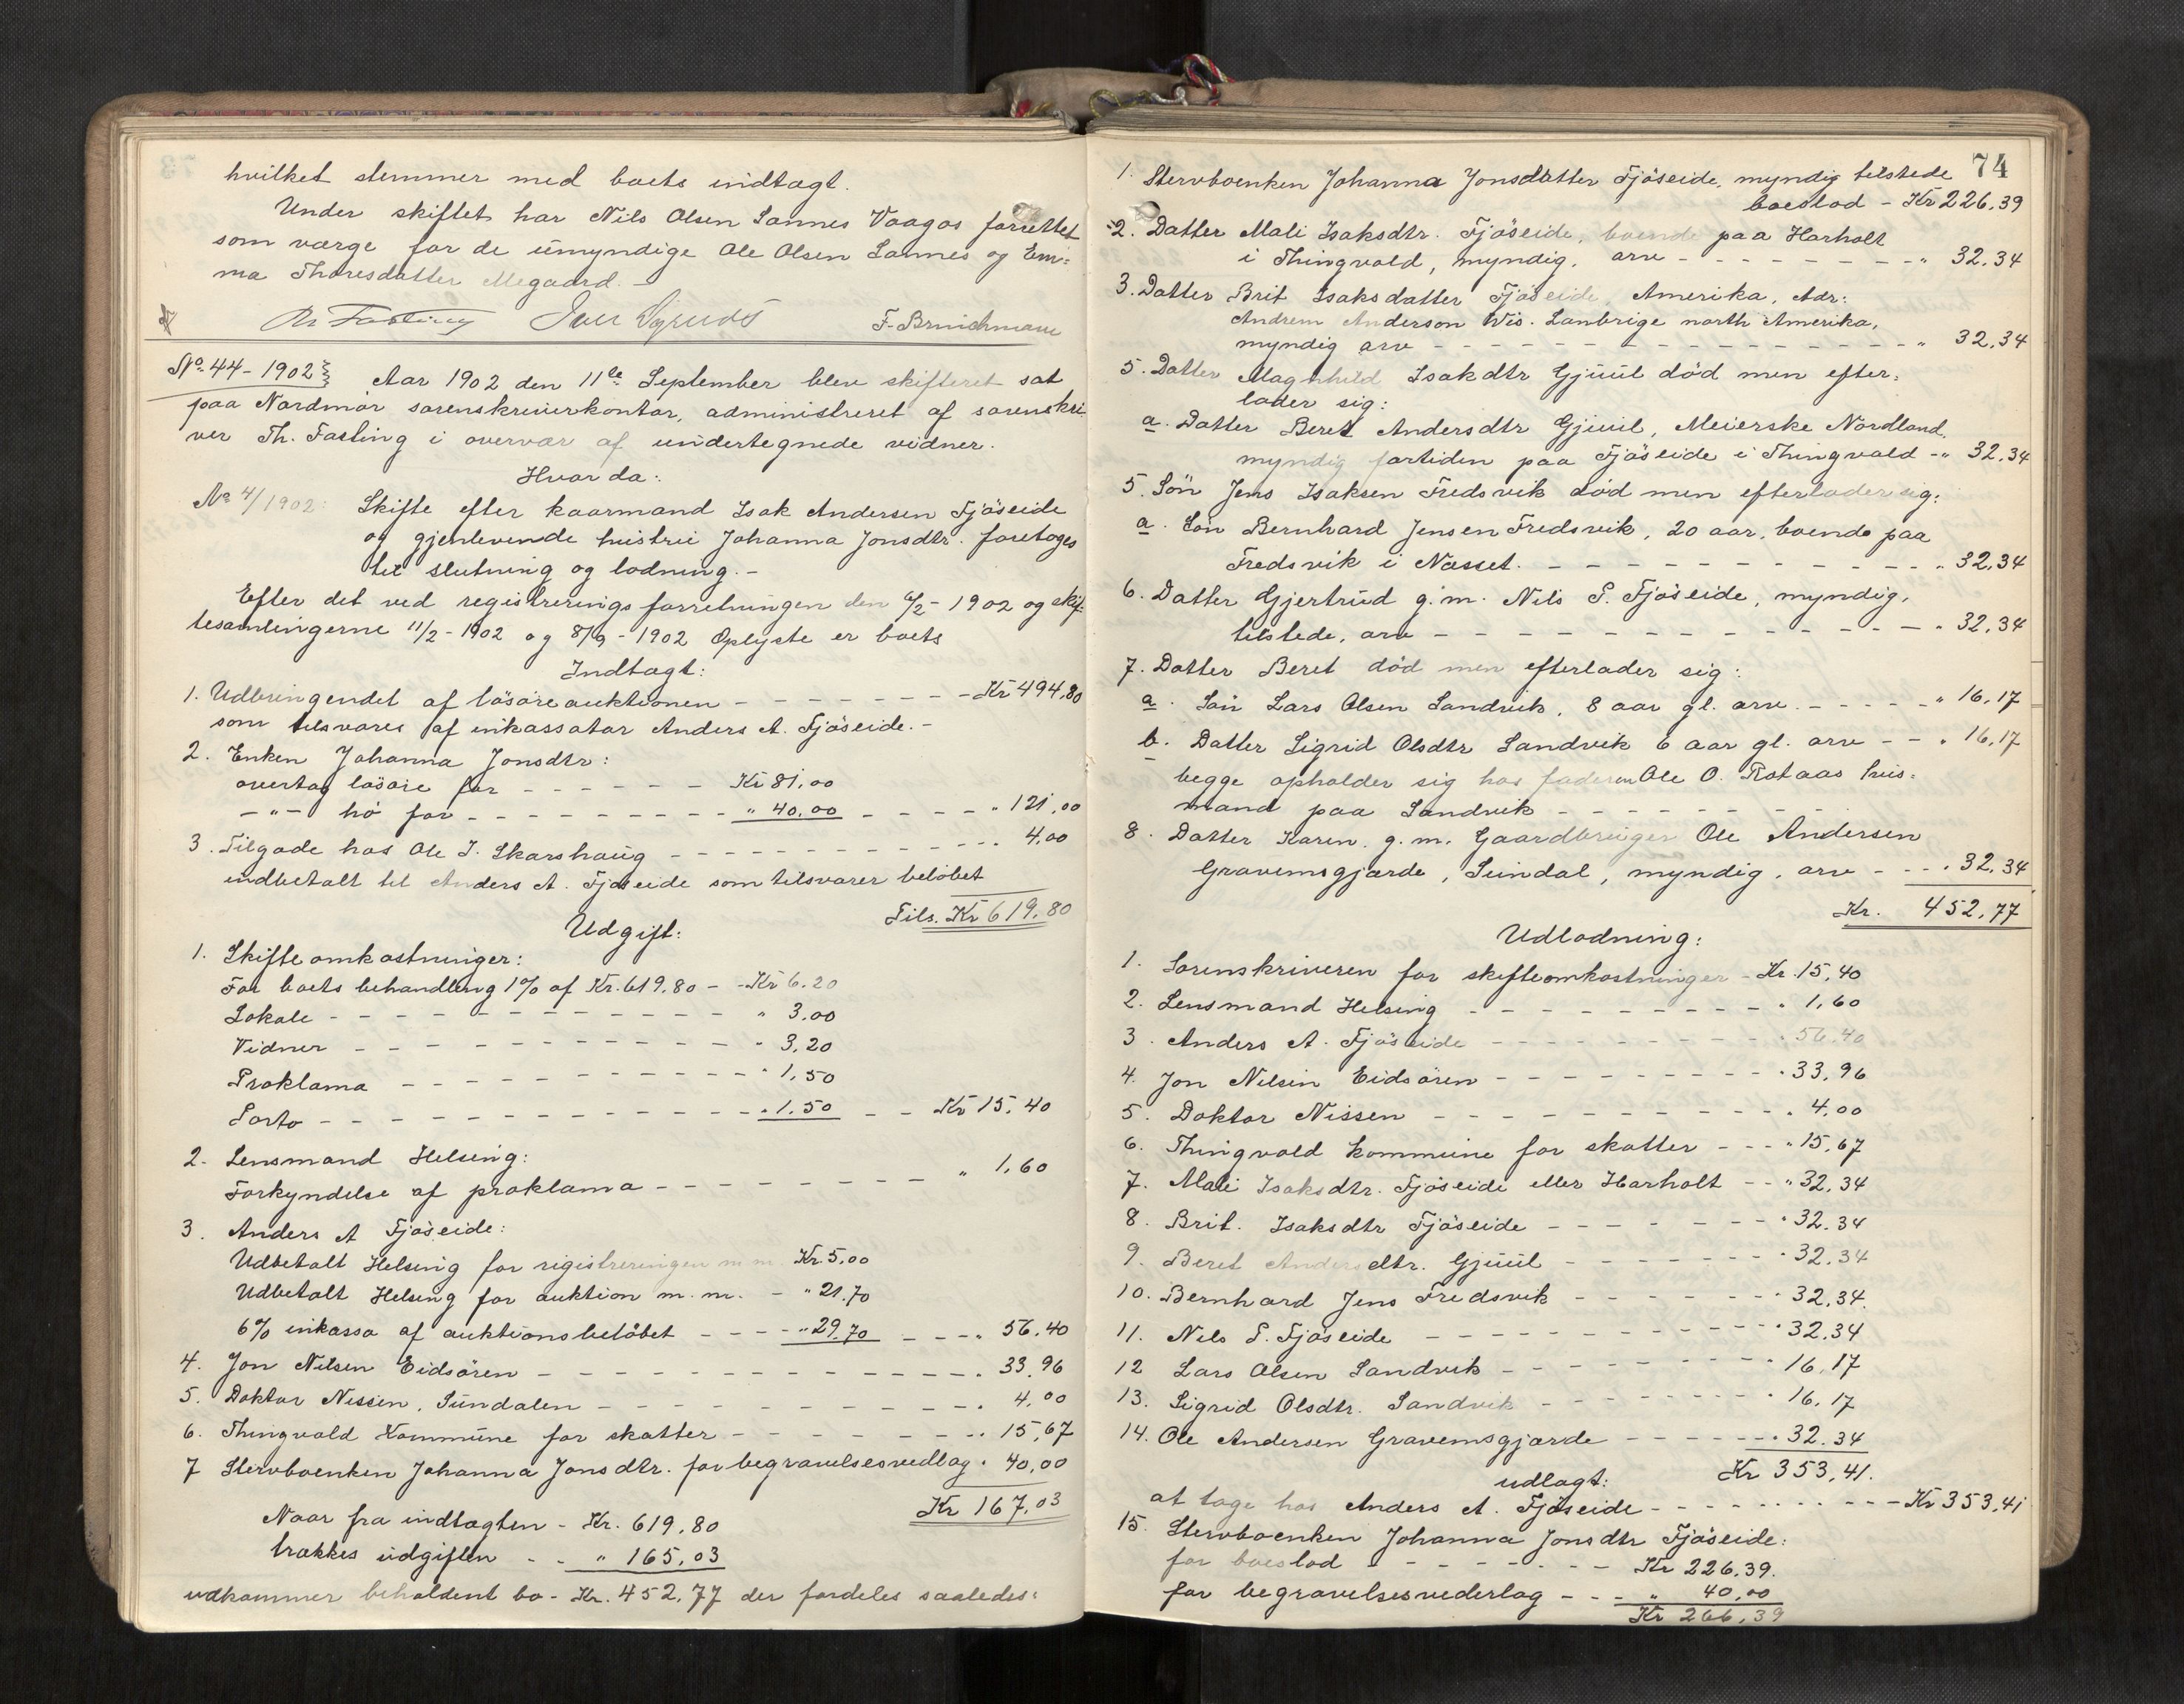 hvilket stemmer med boets indtægt.
Under skiftet har Nils Olsen Sannes Vaagos forrettet
som værge for de umyndige Ole Olsen Sannes og Em=
ma Thoresdatter Megaard. –
Th Fasling F. Bruichmann
No. 44 - 1902 Aar 1902 den 11te September blev skifteret sat
paa Nordmør sorenskriverkontor, administreret af sorenskri
ver Th. Fasling i overvær af undertegnede vidner.
Hvorda:
No 4/1902: Skifte efter kaarmand Isak Andersen Fjøseide
og gjenlevende hustru Johanna Jonsdtr. foretoges
til slutning og lodning. –
Efter det ved registreringsforretningen den 6/2 - 1902 og skif-
tesamlingerne 11/2 - 1902 og 8/9 - 1902 Oplyste er boets
Indtægt:
1. Udbringendet af løsøreauktionen - - - - - - - Kr 494,80
som tilsvares af inkassator Anders A. Fjøseide. –
2. Enken Johanna Jonsdtr:
overtag løsøre for - - - - - - Kr 81,00
- " - hø for - - - - - - - - - " 40,00 - - - - - " 121,00
3. Tilgode hos Ole I. Skarshaug - - - - - - - - - - - - " 4,00
indbetalt til Anders A. Fjøseide som tilsvarer beløbet
Tils. Kr 619,80
Udgift:
1. Skifteomkostninger:
For boets behandling 1% af Kr. 619,80 - - Kr 6.20
Lokale - - - - - - - - - - - - " 3,00
Vidner - - - - - - - - - - - " 3,20
Proklama - - - - - - - - - - " 1,50
Porto - - - - - - - - - - - - - " 1.50 - - Kr 15,40
2. Lensmand Helsing:
Forkyndelse af proklama - - - - - - - - - " 1,60
3. Anders A Fjøseide:
Udbetalt Helsing for rigistreringen m m Kr. 5,00
Udbetalt Helsing for auktion m. m. - " 21.70
6% inkasso af auktionsbeløbet - - - - " 29,70 - - - - " 56,40
4. Jon Nilsen Eidsøren - - - - - - - - - - - - - - " 33.96
5. Doktor Nissen, Sundalen - - - - - - - - - - - - " 4,00
6. Thingvold Kommune for skatter - - - - - - - - " 15,67
7 Stervboenken Johanna Jonsdtr. for begravelsesvedlag " 40,00
Kr 167,03
Naar fra indtægten - Kr. 619,80
trækkes udgiften - - " 165,03
udkommer beholdent bo - Kr. 452,77 der fordeles saaledes:
74
1. Stervboenken Johanna Jonsdatter Fjøseide, myndig tilstede
boeslod - Kr 226,39
2. Datter Mali Isaksdtr. Fjøseide, boende paa Harholt
i Thingvold, myndig, arv - - - - - - - - - " 32,34
3. Datter Brit Isaksdatter Fjøseide, Amerika, Adr:
Andrem Anderson Wis. Lanbrige north Amerika,
myndig arv - - - - - - - - - - - - - - - - " 32,34
5. Datter Magnhild Isakdtr Gjuul død men efter=
lader sig:
a. Datter Beret Andersdtr Gjuul, Meierske Nordland,
myndig fortiden paa Fjøseide i Thingvold - " 32,34
5. Søn Jens Isaksen Fredsvik død men efterlader sig:
a. Søn Bernhard Jensen Fredsvik, 20 aar, boende paa
Fredsvik i Næsset. - - - - - - - - - - - - - " 32,34
6. Datter Gjertrud g. m. Nils P. Fjøseide, myndig,
tilstede, arv - - - - - - - - - - - - - - - " 32,34
7. Datter Beret død men efterlader sig:
a. Søn Lars Olsen Sandvik, 8 aar gl. arv. - - - - - " 16,17
b. Datter Sigrid Olsdtr Sandvik 6 aar gl. arv - - " 16,17
begge opholder sig hos faderen Ole O. Røtaas hus=
mand paa Sandvik - - - - - - - -
8. Datter Karen g. m. Gaardbruger Ole Andersen
Gravemsgjærde, Sundal, myndig, arv - - - " 32,34
Kr. 452,77
Udlodning:
1. Sorenskriveren for skifteomkostninger - Kr. 15,40
2. Lensmand Helsing - - - - - - - - - - - " 1,60
3. Anders A. Fjøseide - - - - - - - - - - " 56,40
4. Jon Nilsen Eidsøren - - - - - - - - - - " 33,96
5. Doktor Nissen - - - - - - - - - - - - " 4,00
6. Thingvold kommune for skatter - - - " 15,67
7. Mali Isaksdtr. Fjøseide eller Harholt - - " 32,34
8. Brit. Isaksdtr Fjøseide - - - - - - - " 32.34
9. Beret Andersdtr. Gjuul - - - - - - - " 32,34
10. Bernhard Jens Fredsvik - - - - - - - " 32,34.
11. Nils P. Fjøseide - - - - - - - - - - - - " 32,34
12 Lars Olsen Sandvik - - - - - - - - - " 16,17
13. Sigrid Olsdtr. Sandvik - - - - - - - - " 16,17
14. Ole Andersen Gravemsgjærde - - - - - - " 32.34
Kr 353,41.
udlagt:
at tage hos Anders A. Fjøseide - - - - - - - - - - Kr 353,41
15. Stervboenken Johanna Jonsdtr Fjøseide:
for boeslod - - - - - - - Kr 226,39.
for begravelsesvederlag - - - " 40,00
Kr 266,39